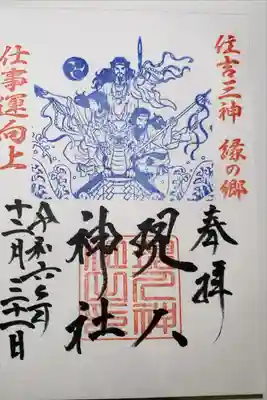 住吉三神 縁の郷
仕事運向上
奉拝
現人
神社
令和六年
十二月三十一日